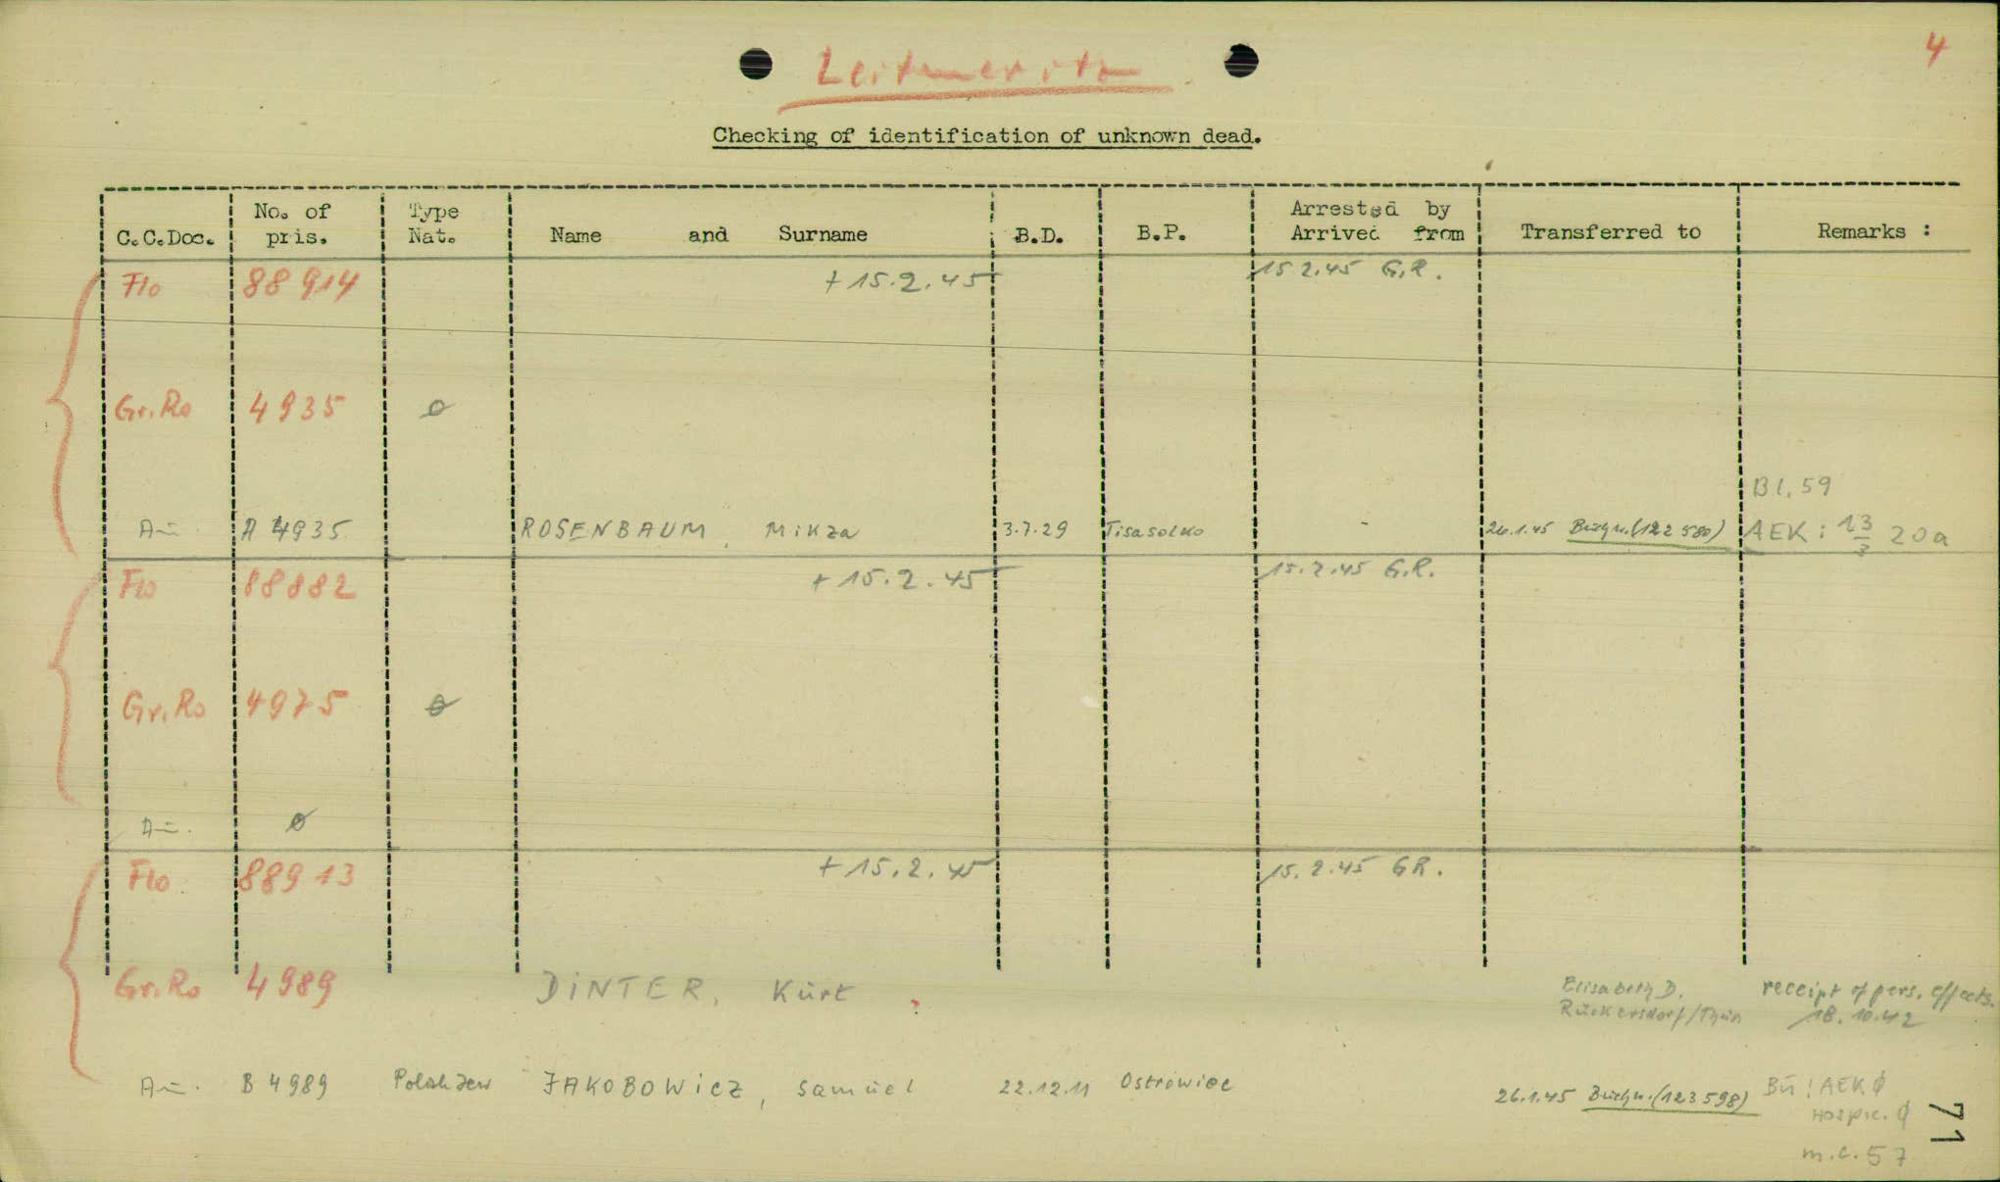 4
Leitmeritz
Checking of identification of unknown dead.
C.C.Doc. No. of pris. Type Nat. Name and Surname B.D. B.P. Arrested by Arrived from Transferred to Remarks :
Flo 88914 + 15.2.45 15.2.45 G.R.
Gr.Ro 4935 ø
Bl. 59
Au. A 4935 ROSENBAUM, Mikza 3.7.29 Tisasolko - 26.1.45 Buchw.(122 580) AEK: 13/3 20a
Flo 88882 + 15.2.45 15.2.45 G.R.
Gr.Ro 4975 ø
Au. ø
Flo. 88913 + 15.2.45 15.2.45 GR.
Gr.Ro 4989 DINTER, Kurt ? Elisabeth D. receipt of pers. effects.
Rückersdorf/Thür 18.10.42
Au. B 4989 Polish Jew JAKOBOWICZ, Samuel 22.12.11 Ostrowiec 26.1.45 Buchw.(123598) Bu: AEK ø
Hospic. ø
m.c. 57
71